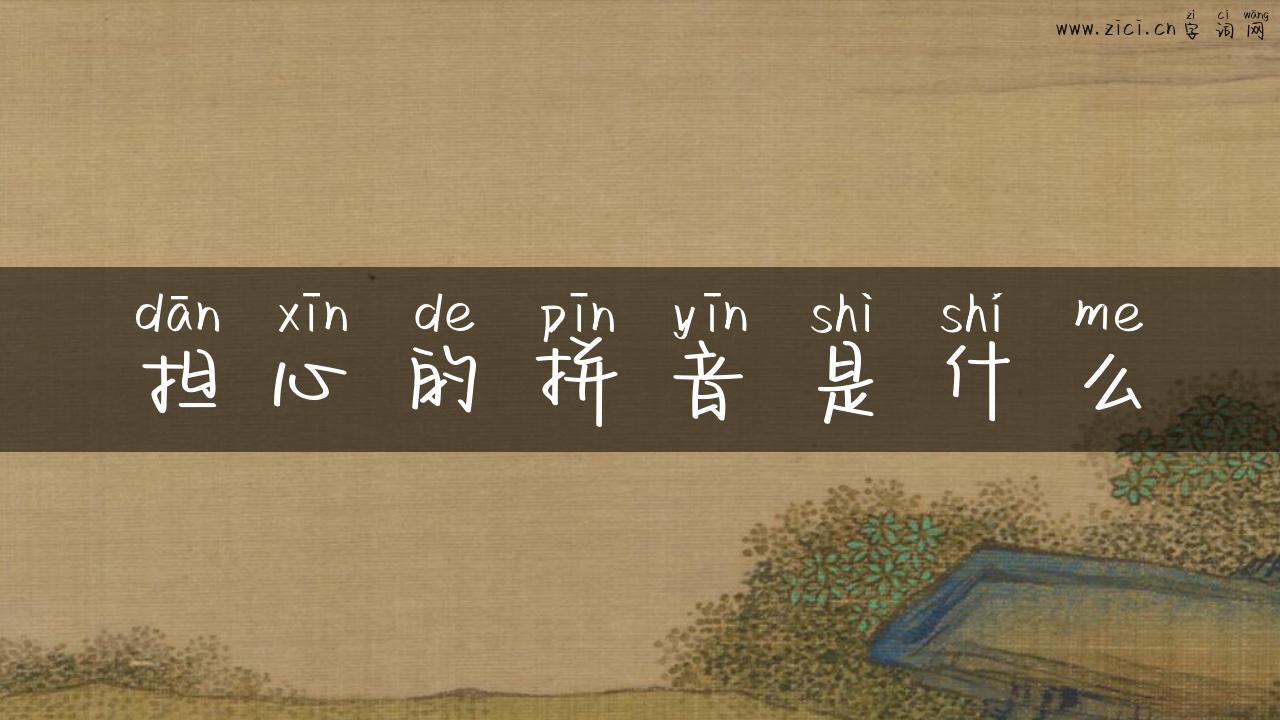 zì cí wǎng
www.zici.cn 字词网
dān xīn de pīn yīn shì shí me
担心的拼音是什么